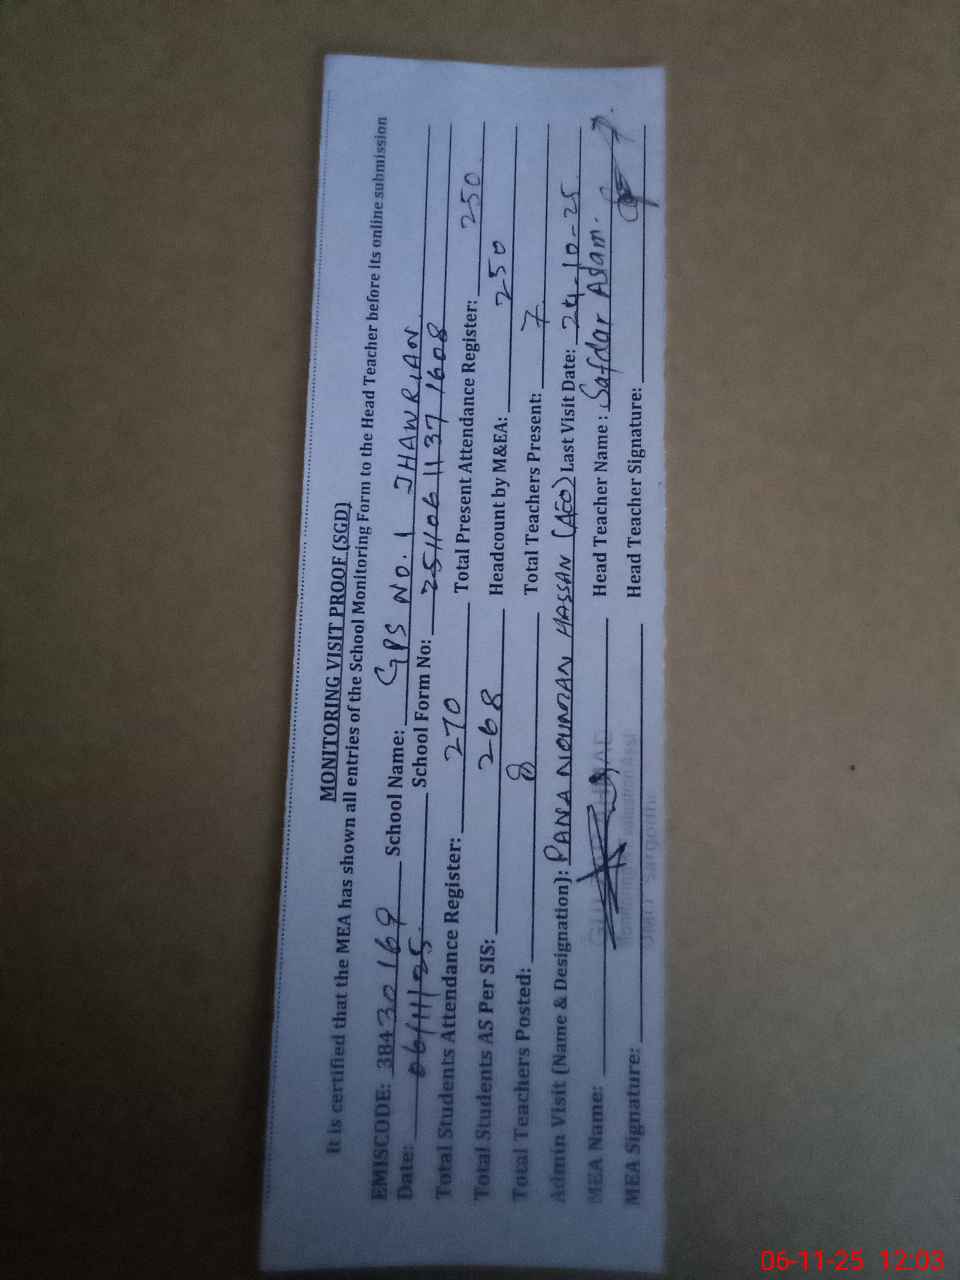 MONITORING VISIT PROOF (SGD)
It is certified that the MEA has shown all entries of the School Monitoring Form to the Head Teacher before its online submission
EMISCODE: 38430169 School Name: GPS No. 1 JHAWRIAN
Date: 06/11/25 School Form No: 25110611371608
Total Students Attendance Register: 270 Total Present Attendance Register: 250
Total Students AS Per SIS: 268 Headcount by M&EA: 250
Total Teachers Posted: 8 Total Teachers Present: 7
Admin Visit (Name & Designation): RANA NOUMAN HASSAN (AEO) Last Visit Date: 24-10-25
MEA Name: Head Teacher Name: Safdar Aslam.
MEA Signature: Head Teacher Signature:
06-11-25 12:03